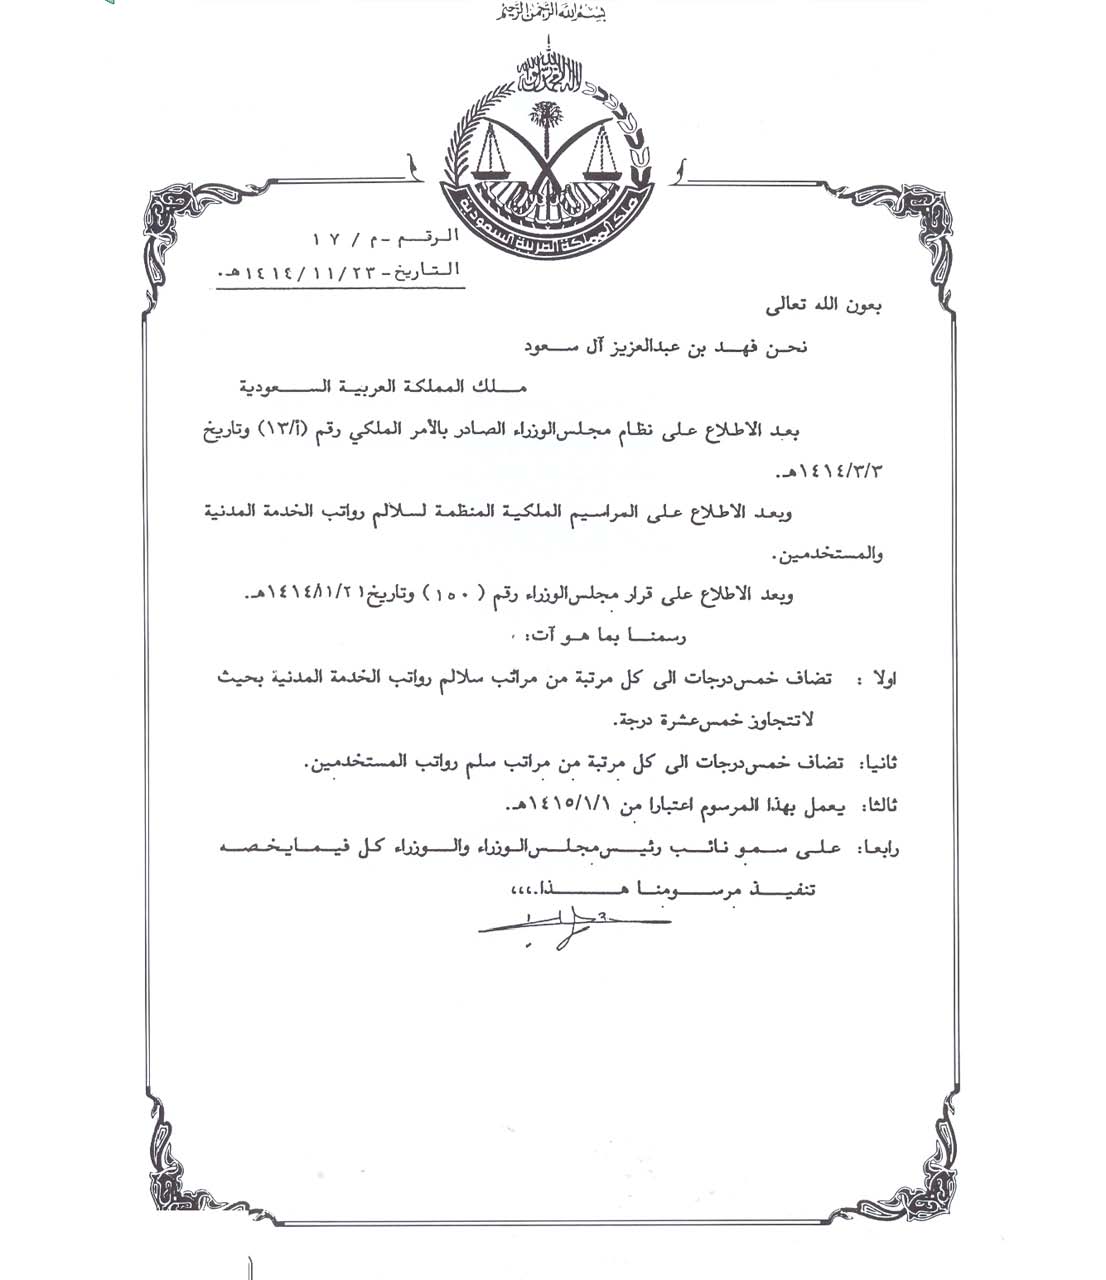 بسم الله الرحمن الرحيم
لا إله إلا الله محمد رسول الله
ملك المملكة العربية السعودية
الرقم - م / ١٧
التاريخ - ١٤١٤/١١/٢٣هـ.
بعون الله تعالى
نحن فهد بن عبدالعزيز آل سعود
ملك المملكة العربية السعودية
بعد الاطلاع على نظام مجلس الوزراء الصادر بالأمر الملكي رقم (أ/١٣) وتاريخ
١٤١٤/٣/٣هـ.
وبعد الاطلاع على المراسيم الملكية المنظمة لسلالم رواتب الخدمة المدنية
والمستخدمين.
وبعد الاطلاع على قرار مجلس الوزراء رقم ( ١٥٠ ) وتاريخ ١٤١٤/١١/٢١هـ.
رسمنا بما هو آت:
اولا : تضاف خمس درجات الى كل مرتبة من مراتب سلالم رواتب الخدمة المدنية بحيث
لاتتجاوز خمس عشرة درجة.
ثانيا: تضاف خمس درجات الى كل مرتبة من مراتب سلم رواتب المستخدمين.
ثالثا: يعمل بهذا المرسوم اعتبارا من ١٤١٥/١/١هـ.
رابعا: على سمو نائب رئيس مجلس الوزراء والوزراء كل فيما يخصه
تنفيذ مرسومنا هذا.،،،